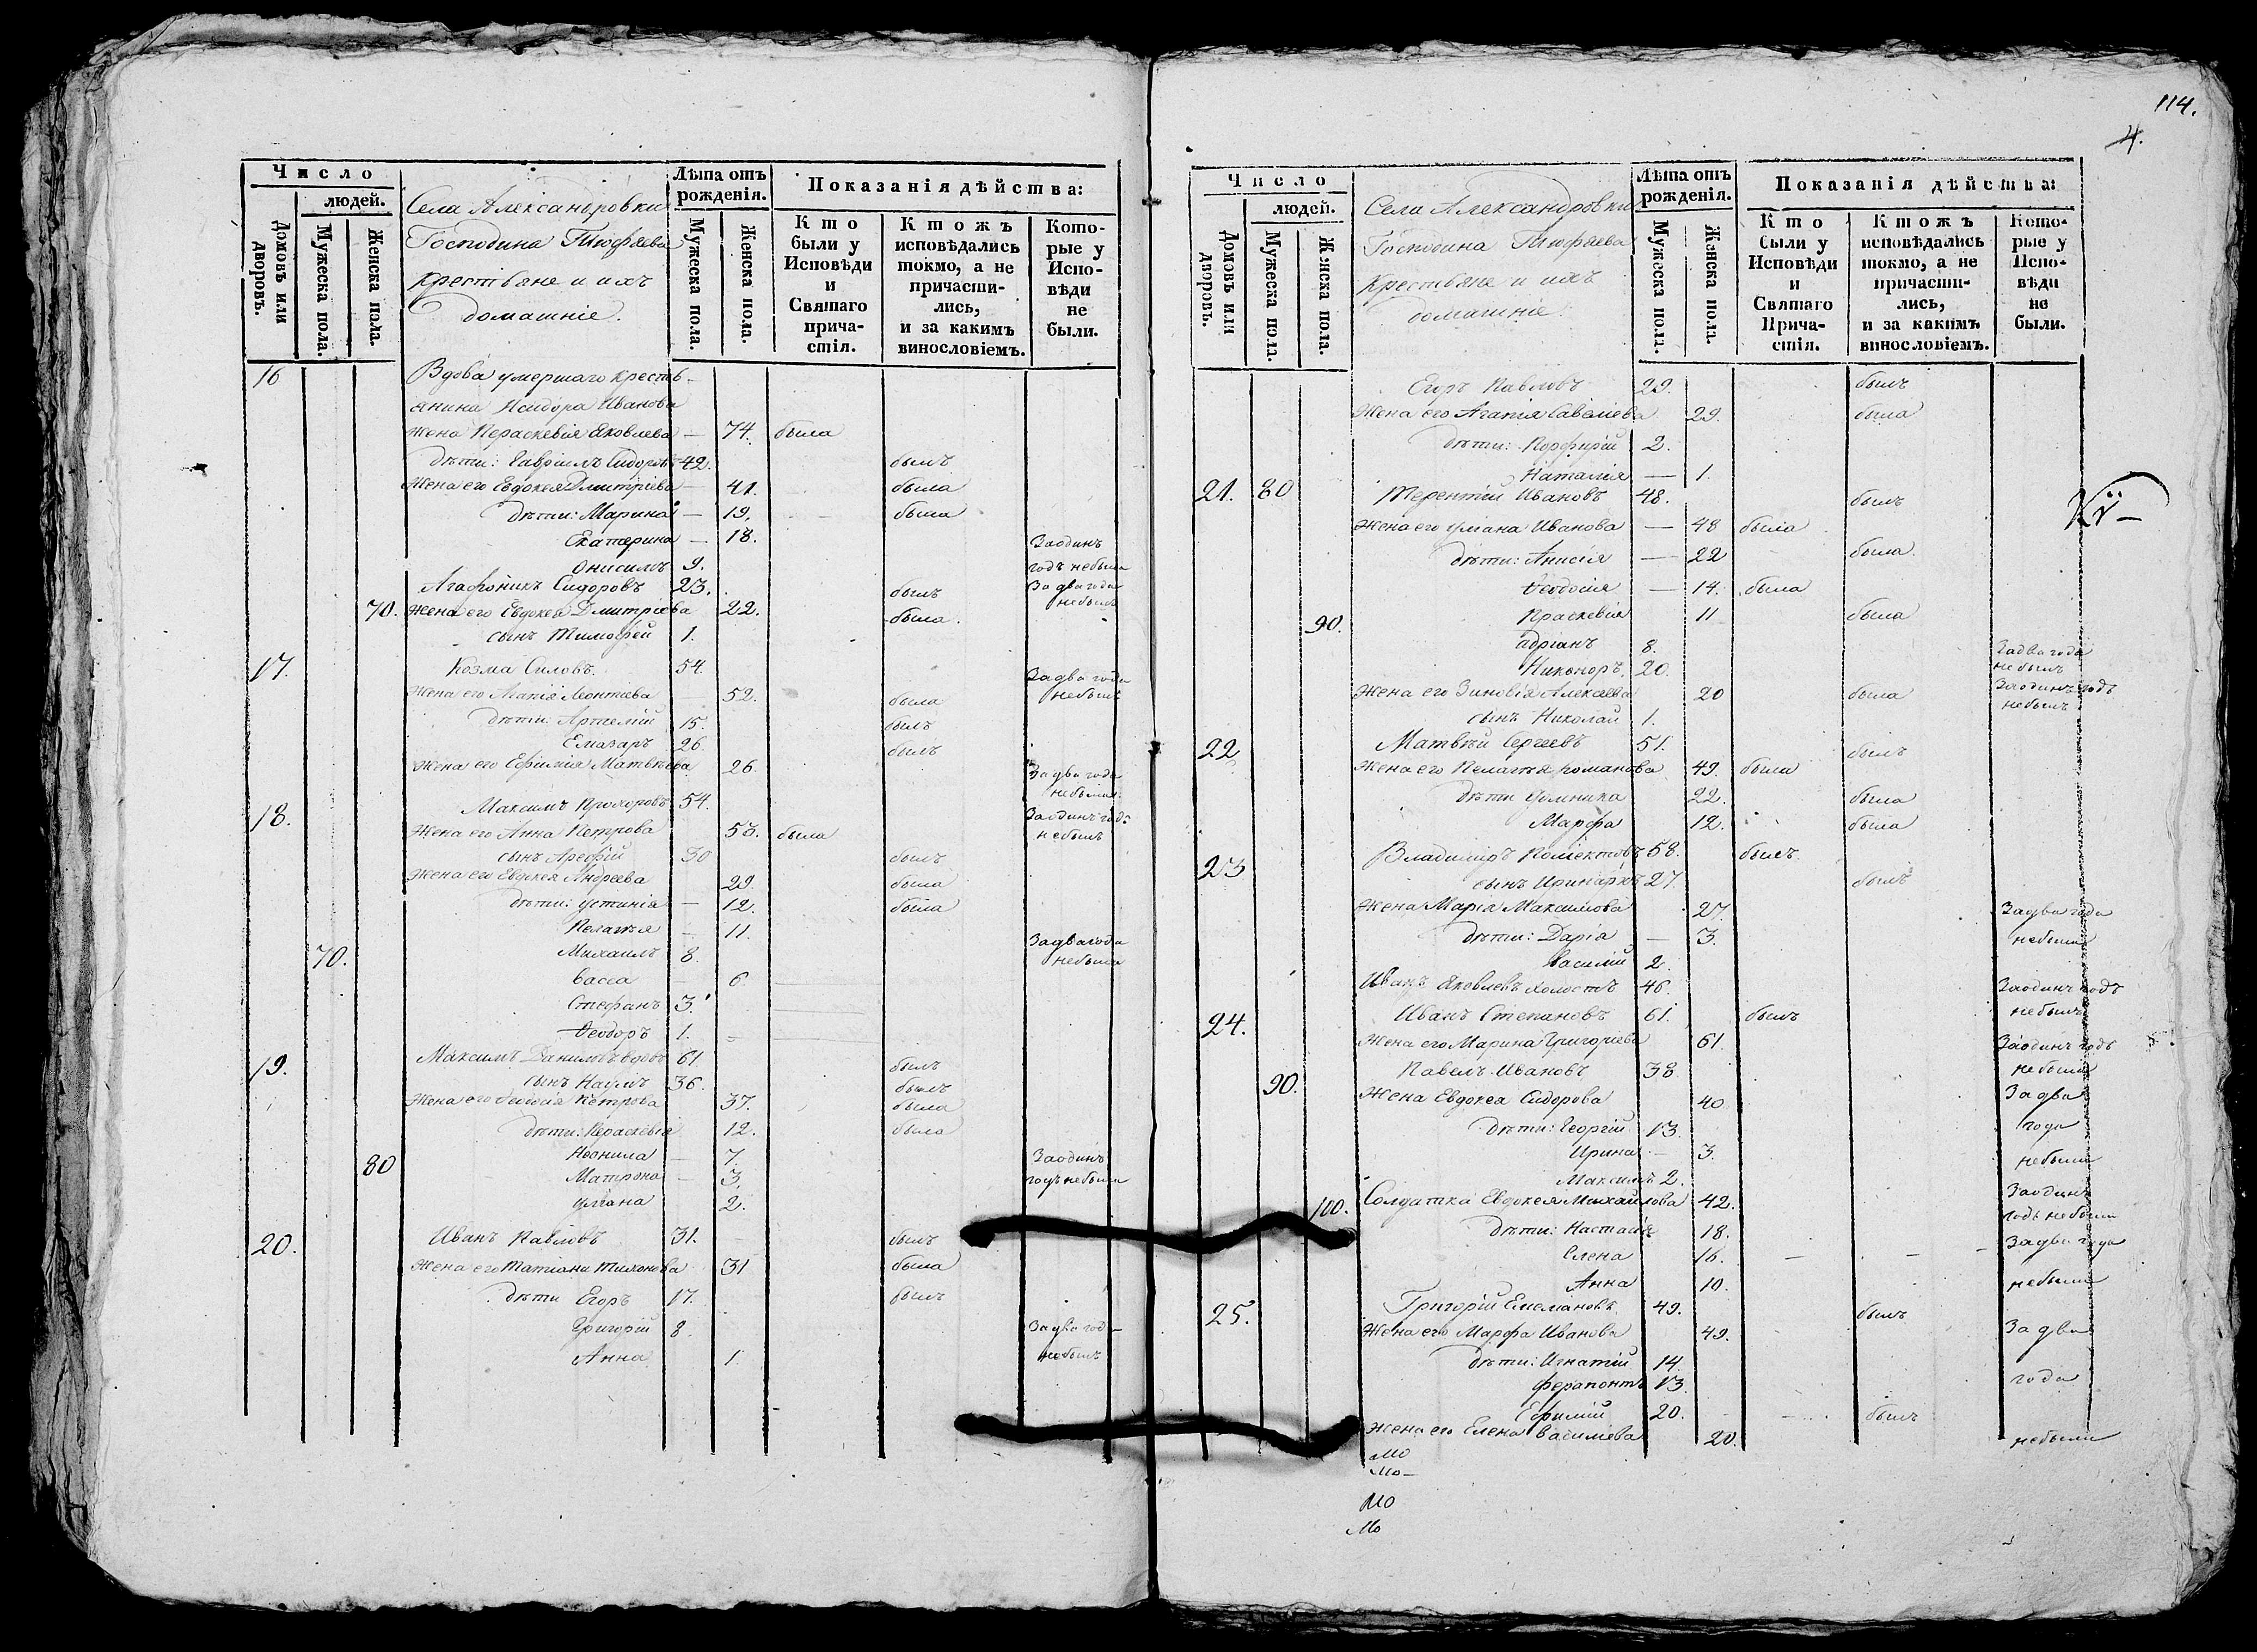 Число
людей.
Домовъ или дворовъ.
Мужеска пола.
Женска пола.
Села Александровки
Господина Тюфяева
крестьяне и ихъ
домашніе.
Лѣта отъ рожденія.
Мужеска пола.
Женска пола.
Показанія дѣйства:
Кто были у Исповѣди и Святаго причастія.
Ктожъ исповѣдались токмо, а не причастились, и за какимъ винословіемъ.
Которые у Исповѣди не были.
16 Вдова умершаго кресть-
янина Исидора Иванова
жена Параскевія Яковлева — 74. была
дѣти: Гавріилъ Сидоровъ 42. былъ
Жена его Евдокея Дмитріева — 41. была
дѣти: Марина — 19. была
Екатерина — 18. Заодинъ
Онисимъ 9. годъ небыла
Агафоникъ Сидоровъ 23. былъ За два года небылъ
70. жена его Евдокея Дмитріева 22. была
сынъ Тимофей 1.
17. Козма Силовъ 54. За два года небылъ
Жена его Леонтіева 52. была
дѣти: Артемій 15. былъ
Елазаръ 26. былъ
жена его Ефимія Матвѣева 26. За два года небыла
18. Максимъ Прохоровъ 54. Заодинъ годъ небылъ
Жена его Анна Петрова 53. была
сынъ Арефій 30 былъ
Жена его Евдокея Андреева 29. была
дѣти: Устинія — 12. была
Пелагея — 11. За два года
70. Михаилъ 8. небыла
васса — 6
Стефанъ 3.
Ѳеодоръ 1.
19. Максимъ Даниловъ вдовъ 61 былъ
сынъ Наумъ 36. былъ
Жена его Ѳеодосія Петрова 37. была
дѣти: Параскевія 12. была
80 Неонила — 7. Заодинъ
Матрона — 3. годъ небыли
Уліана 2.
20. Иванъ Павловъ 31. былъ
Жена его Татіана Тихонова 31 была
дѣти Егоръ 17. былъ
Григорій 8. За два года
Анна 1. небылъ
114.
4.
Число
людей.
Домовъ или дворовъ.
Мужеска пола.
Женска пола.
Села Александровки
Господина Тюфяева
крестьяне и ихъ
домашніе.
Лѣта отъ рожденія.
Мужеска пола.
Женска пола.
Показанія дѣйства:
Кто были у Исповѣди и Святаго Причастія.
Ктожъ исповѣдались токмо, а не причастились, и за какимъ винословіемъ.
Которые у Исповѣди не были.
Егоръ Павловъ 29. былъ
Жена его Агапія Савеліева 29. была
дѣти: Порфирій 2.
Наталія — 1.
21. 80 Терентій Ивановъ 48. былъ
жена его Уліана Иванова — 48 была
дѣти: Анисія — 22 была
Ѳеодосія — 14. была
90. Праскевія 11 была
Адріанъ 8. За два года
Никоноръ 20. небылъ
Жена его Зиновія Алексеева 20 была Заодинъ годъ небылъ
сынъ Николай 1.
22 Матвѣй Сергеевъ 51. былъ
Жена его Пелагея романова 49. была
дѣти Домника 22. была
Марфа 12. была
23 Владиміръ Поліектовъ 58. былъ
сынъ Иринархъ 27. былъ
жена Марія Максимова 27. За два года
дѣти: Дарія — 3. небыла
Василій 2.
Иванъ Яковлевъ холостъ 46. Заодинъ годъ небылъ
24. Иванъ Степановъ 61. былъ
Жена его Марина Григоріева 61. Заодинъ годъ небыла
90. Павелъ Ивановъ 38. За два
Жена Евдокеа Сидорова 40 года
дѣти: Георгій 13. небыли
Ирина — 3.
Максимъ 2.
100. Солдатка Евдокея Михаилова 42. Заодинъ годъ небыли
дѣти: Настасія 18. За два года
Елена 16. — — —
Анна 10. небыли
25. Григорій Емеліановъ 49. былъ
Жена его Марфа Иванова 49. За два
дѣти: Игнатій 14.
Ферапонтъ 13. года
Ефимій 20. былъ
жена его Елена Василіева 20. небыли
Мо
Мо—
Мо
Мо